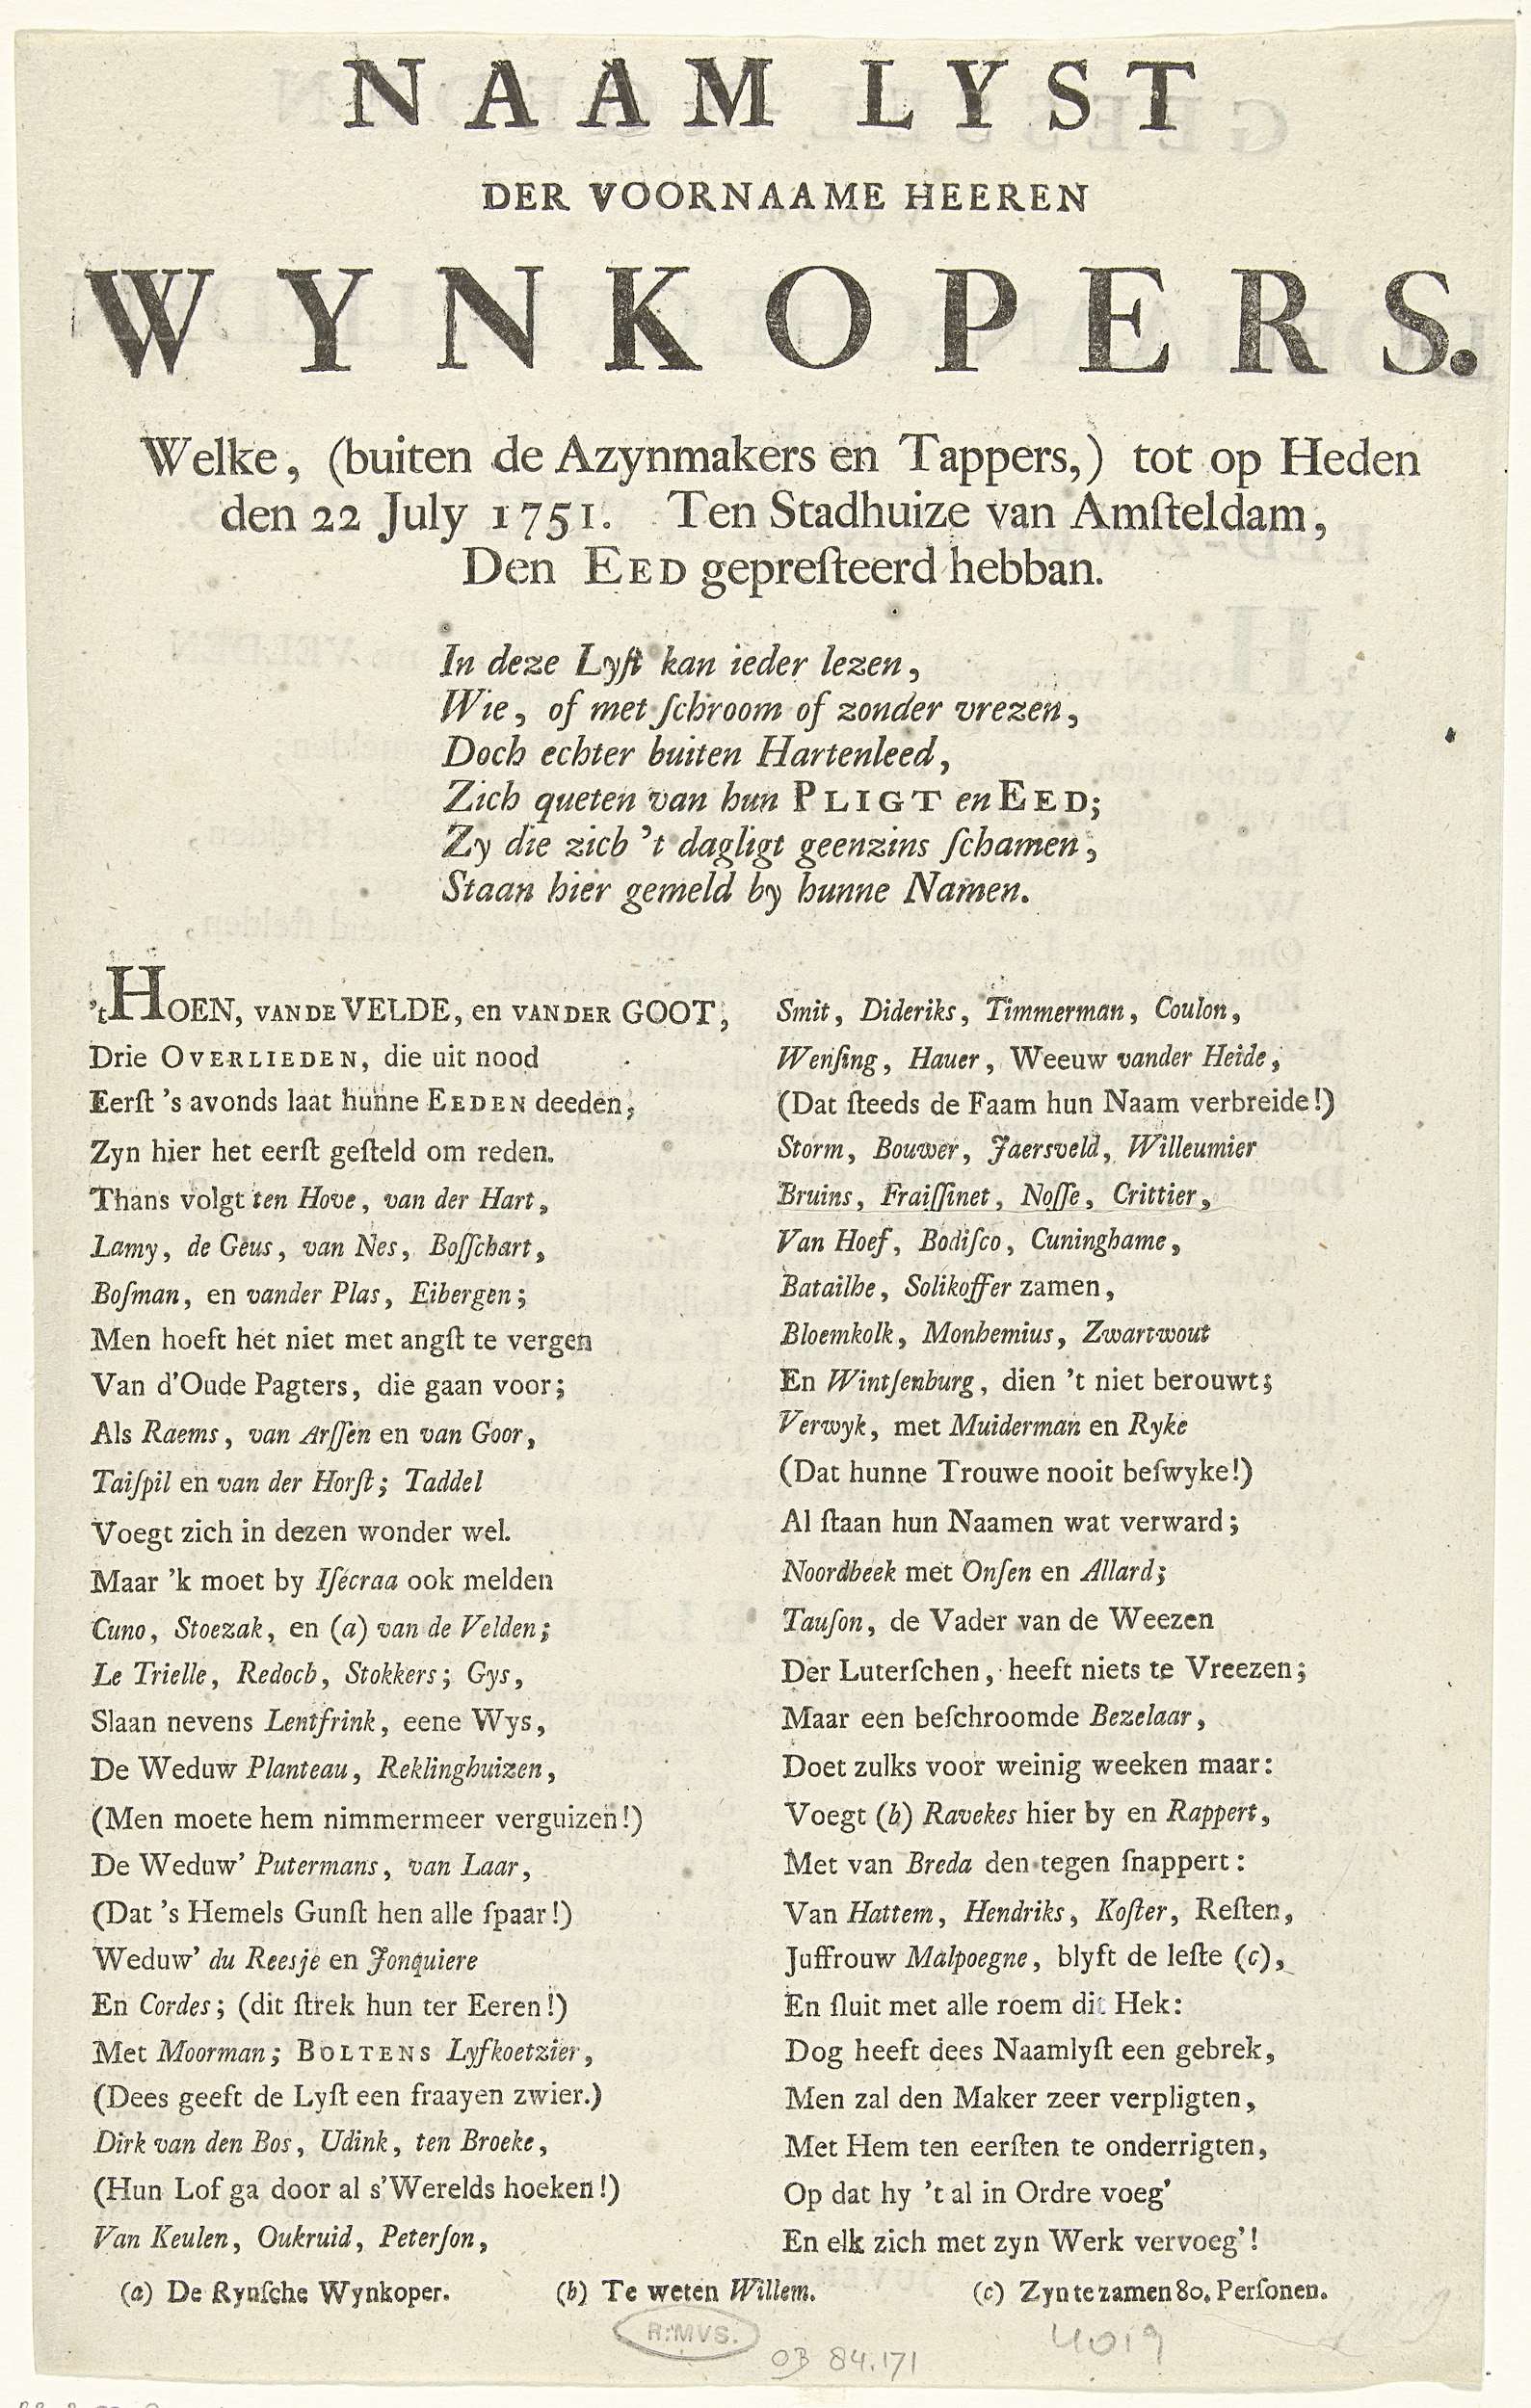 NAAM LYST
DER VOORNAAME HEEREN
WYNKOPERS.
Welke, (buiten de Azynmakers en Tappers,) tot op Heden
den 22 July 1751. Ten Stadhuize van Amſteldam,
Den EED gepreſteerd hebban.
In deze Lyſt kan ieder lezen,
Wie, of met ſchroom of zonder vrezen,
Doch echter buiten Hartenleed,
Zich queten van hun PLIGT en EED;
Zy die zich 't dagligt geenzins ſchamen,
Staan hier gemeld by hunne Namen.
'tHOEN, VAN DE VELDE, en VAN DER GOOT,
Drie OVERLIEDEN, die uit nood
Eerſt 's avonds laat hunne EEDEN deeden,
Zyn hier het eerſt geſteld om reden.
Thans volgt ten Hove, van der Hart,
Lamy, de Geus, van Nes, Boſſchart,
Boſman, en vander Plas, Eibergen;
Men hoeft het niet met angſt te vergen
Van d'Oude Pagters, die gaan voor;
Als Raems, van Arſſen en van Goor,
Taiſpil en van der Horſt; Taddel
Voegt zich in dezen wonder wel.
Maar 'k moet by Iſécraa ook melden
Cuno, Stoezak, en (a) van de Velden;
Le Trielle, Redoch, Stokkers; Gys,
Slaan nevens Lentfrink, eene Wys,
De Weduw Planteau, Reklinghuizen,
(Men moete hem nimmermeer verguizen!)
De Weduw' Putermans, van Laar,
(Dat 's Hemels Gunſt hen alle ſpaar!)
Weduw' du Reesje en Jonquiere
En Cordes; (dit ſtrek hun ter Eeren!)
Met Moorman; BOLTENS Lyfkoetzier,
(Dees geeft de Lyſt een fraayen zwier.)
Dirk van den Bos, Udink, ten Broeke,
(Hun Lof ga door al s'Werelds hoeken!)
Van Keulen, Oukruid, Peterſon,
Smit, Dideriks, Timmerman, Coulon,
Wenſing, Hauer, Weeuw vander Heide,
(Dat ſteeds de Faam hun Naam verbreide!)
Storm, Bouwer, Jaersveld, Willeumier
Bruins, Fraiſſinet, Noſſe, Crittier,
Van Hoef, Bodiſco, Cuninghame,
Batailhe, Solikoffer zamen,
Bloemkolk, Monhemius, Zwartwout
En Wintſenburg, dien 't niet berouwt;
Verwyk, met Muiderman en Ryke
(Dat hunne Trouwe nooit beſwyke!)
Al ſtaan hun Naamen wat verward;
Noordbeek met Onſen en Allard;
Tauſon, de Vader van de Weezen
Der Luterſchen, heeft niets te Vreezen;
Maar een beſchroomde Bezelaar,
Doet zulks voor weinig weeken maar:
Voegt (b) Ravekes hier by en Rappert,
Met van Breda den tegen ſnappert:
Van Hattem, Hendriks, Koſter, Reſten,
Juffrouw Malpoegne, blyft de leſte (c),
En ſluit met alle roem dit Hek:
Dog heeft dees Naamlyſt een gebrek,
Men zal den Maker zeer verpligten,
Met Hem ten eerſten te onderrigten,
Op dat hy 't al in Ordre voeg'
En elk zich met zyn Werk vervoeg'!
(a) De Rynſche Wynkoper. (b) Te weten Willem. (c) Zyn te zamen 80. Perſonen.
R:MVS.
OB 84.171
4019